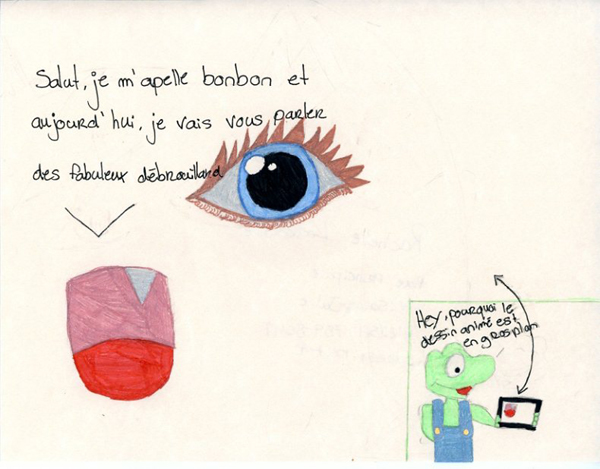 Salut, je m'apelle bonbon et
aujourd'hui, je vais vous parler
des fabuleux débrouillard
Hey, pourquoi le
dessin animé est
en gros plan